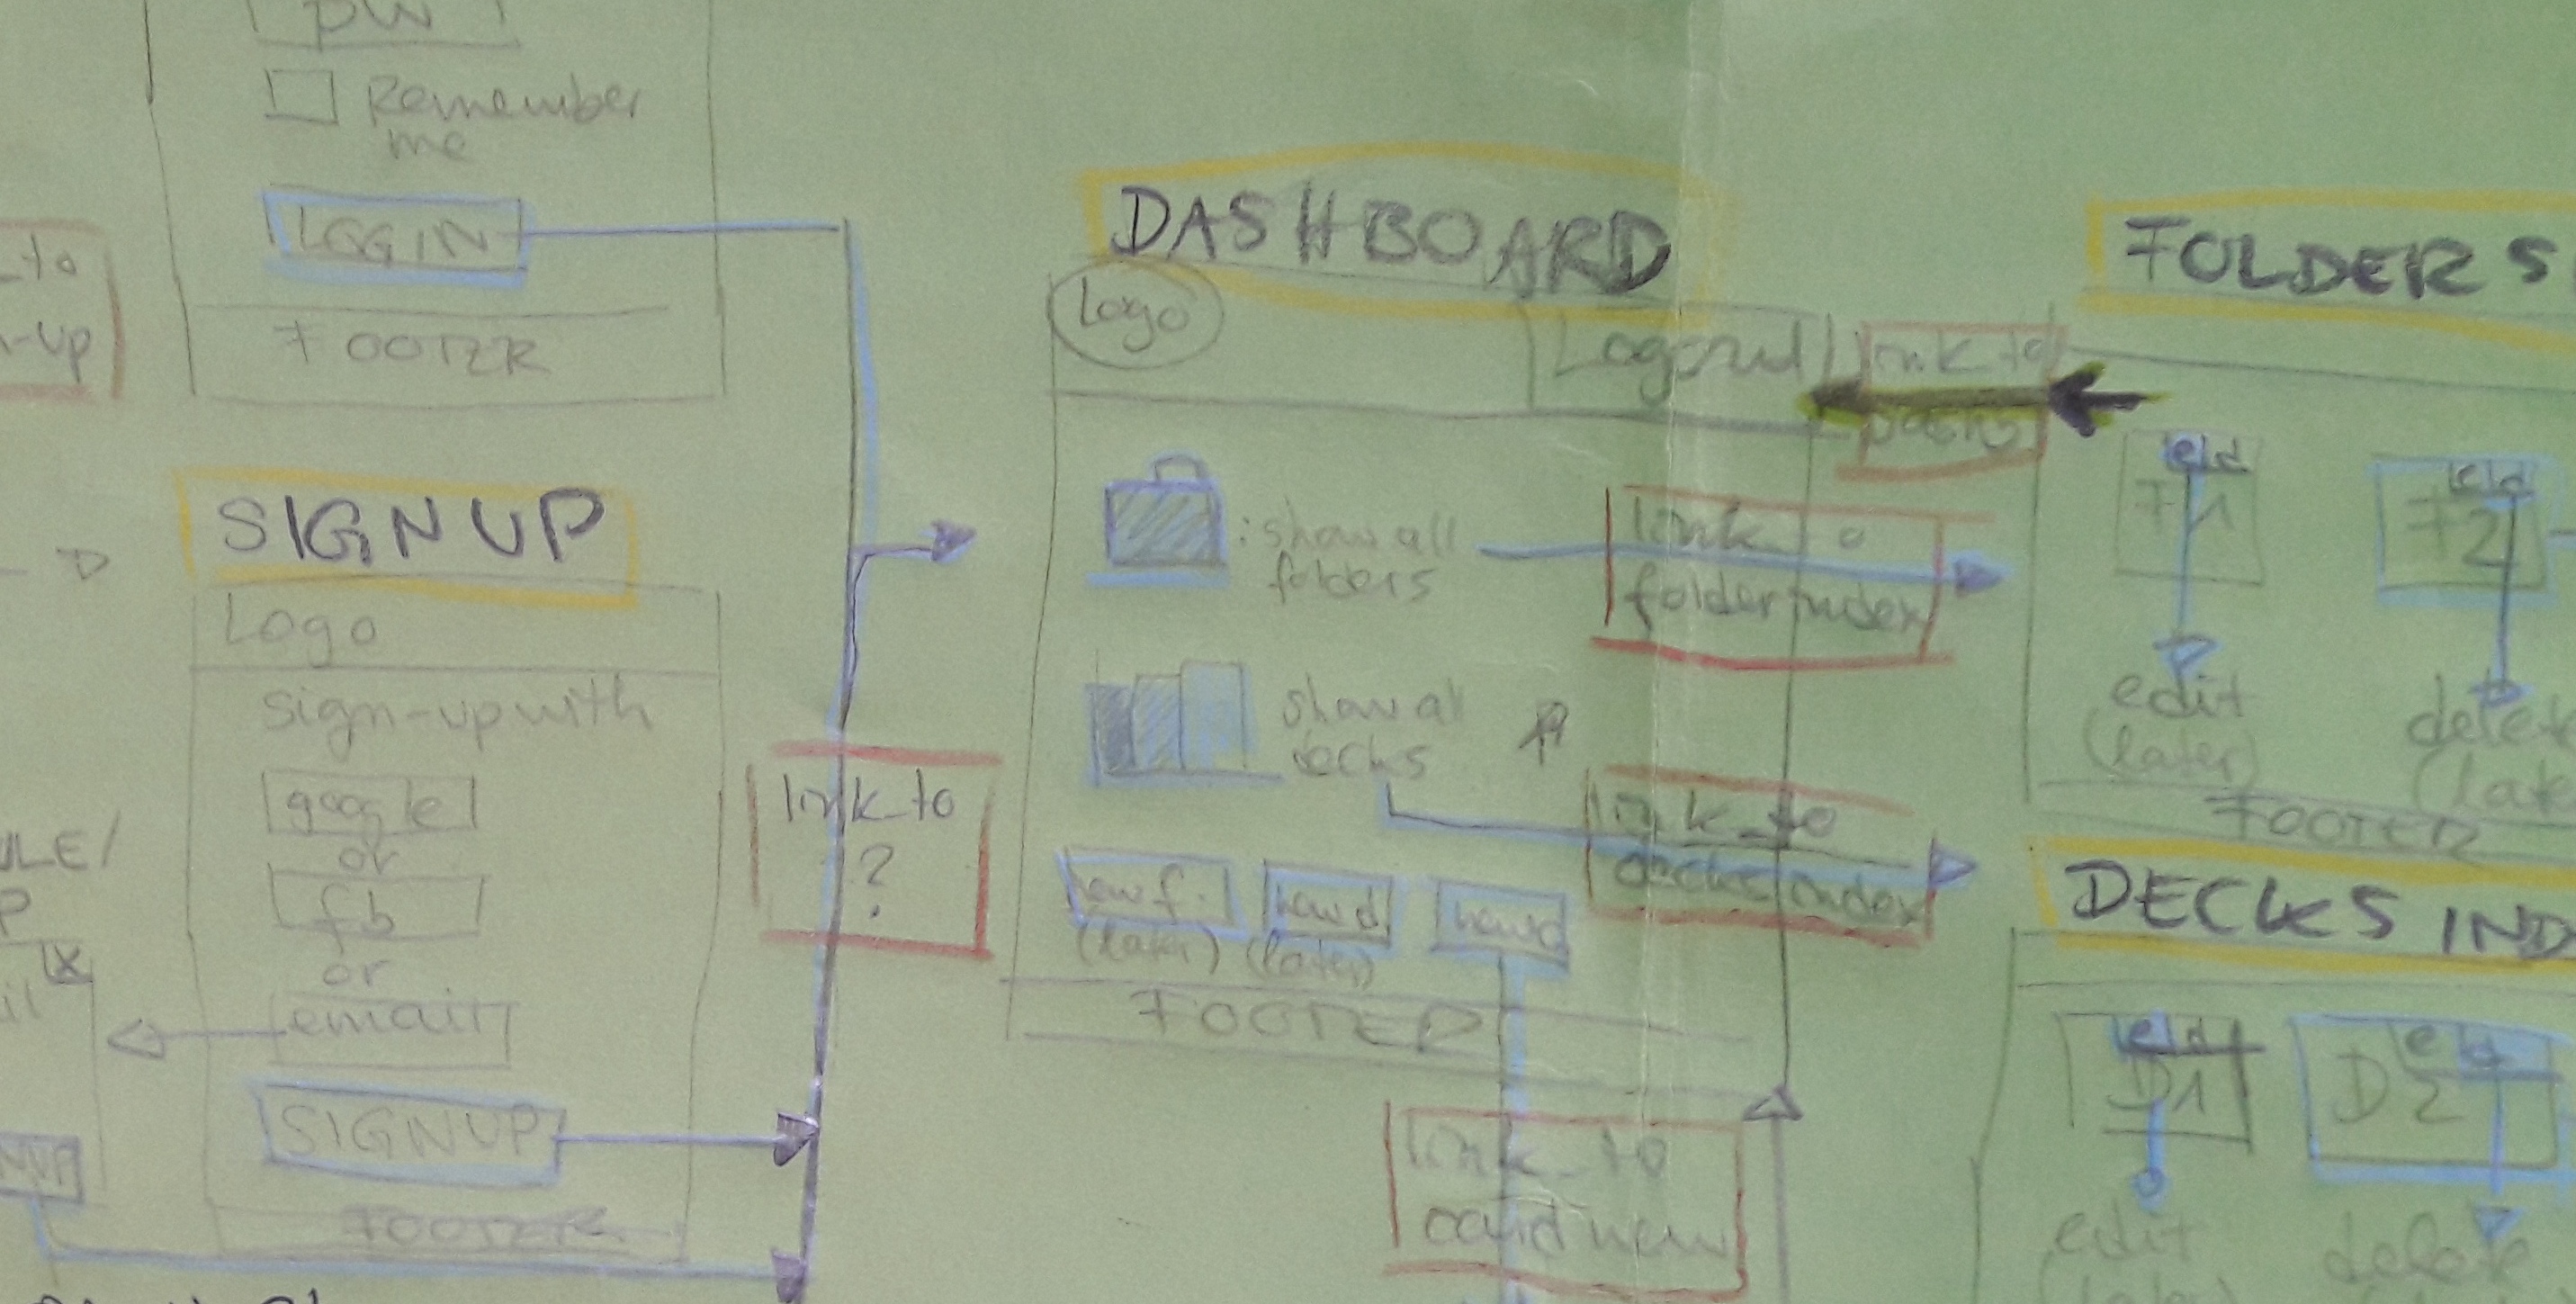 pw
Remember
me
LOGIN
FOOTER
_to
-up
SIGN UP
Logo
sign-up with
google
or
fb
or
email
SIGNUP
FOOTER
link_to
?
DASHBOARD
Logo
Logout
link_to
: show all
folders
link_to
folder index
show all
decks
link_to
decks index
new f.
(later)
new d
(later)
new c
FOOTER
link_to
card new
FOLDERS
e d
F1
e d
F2
edit
(later)
delete
(late
FOOTER
DECKS IND
e d
D1
e d
D2
edit
delete